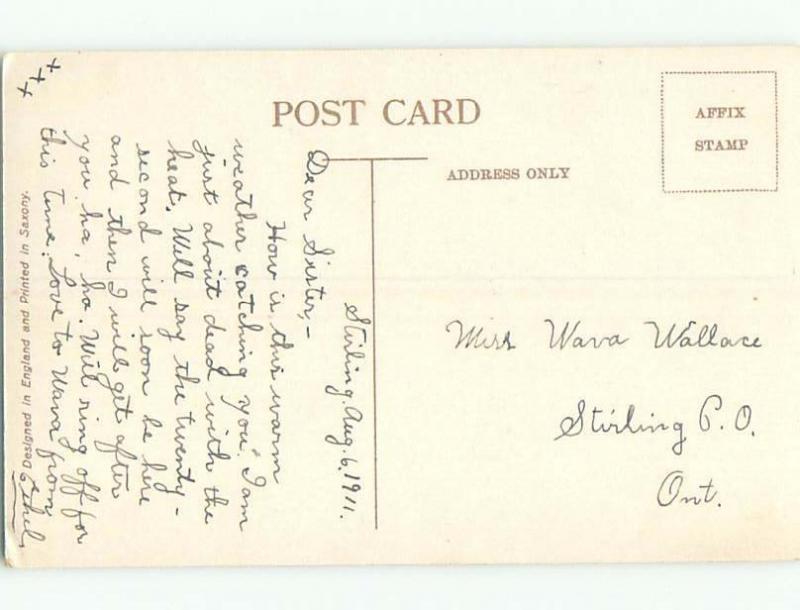 POST CARD
AFFIX
STAMP
ADDRESS ONLY
Stirling. Aug. 6, 1911.
Dear Sister,-
How is this warm
weather catching you? I am
just about dead with the
heat. Well say the twenty-
second will soon be here
and then I will get after
you ha, ha. Will ring off for
this time. Love to Wava from
Ethel
x x x
Designed in England and Printed in Saxony.
Miss Wava Wallace
Stirling P.O.
Ont.